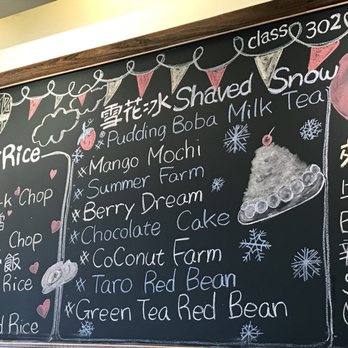 class 302
雪花冰 Shaved Snow
*Pudding Boba Milk Tea
*Mango Mochi
*Summer Farm
*Berry Dream
*Chocolate Cake
*Coconut Farm
*Taro Red Bean
*Green Tea Red Bean
Rice
Chop
Chop
飯
Rice
Rice